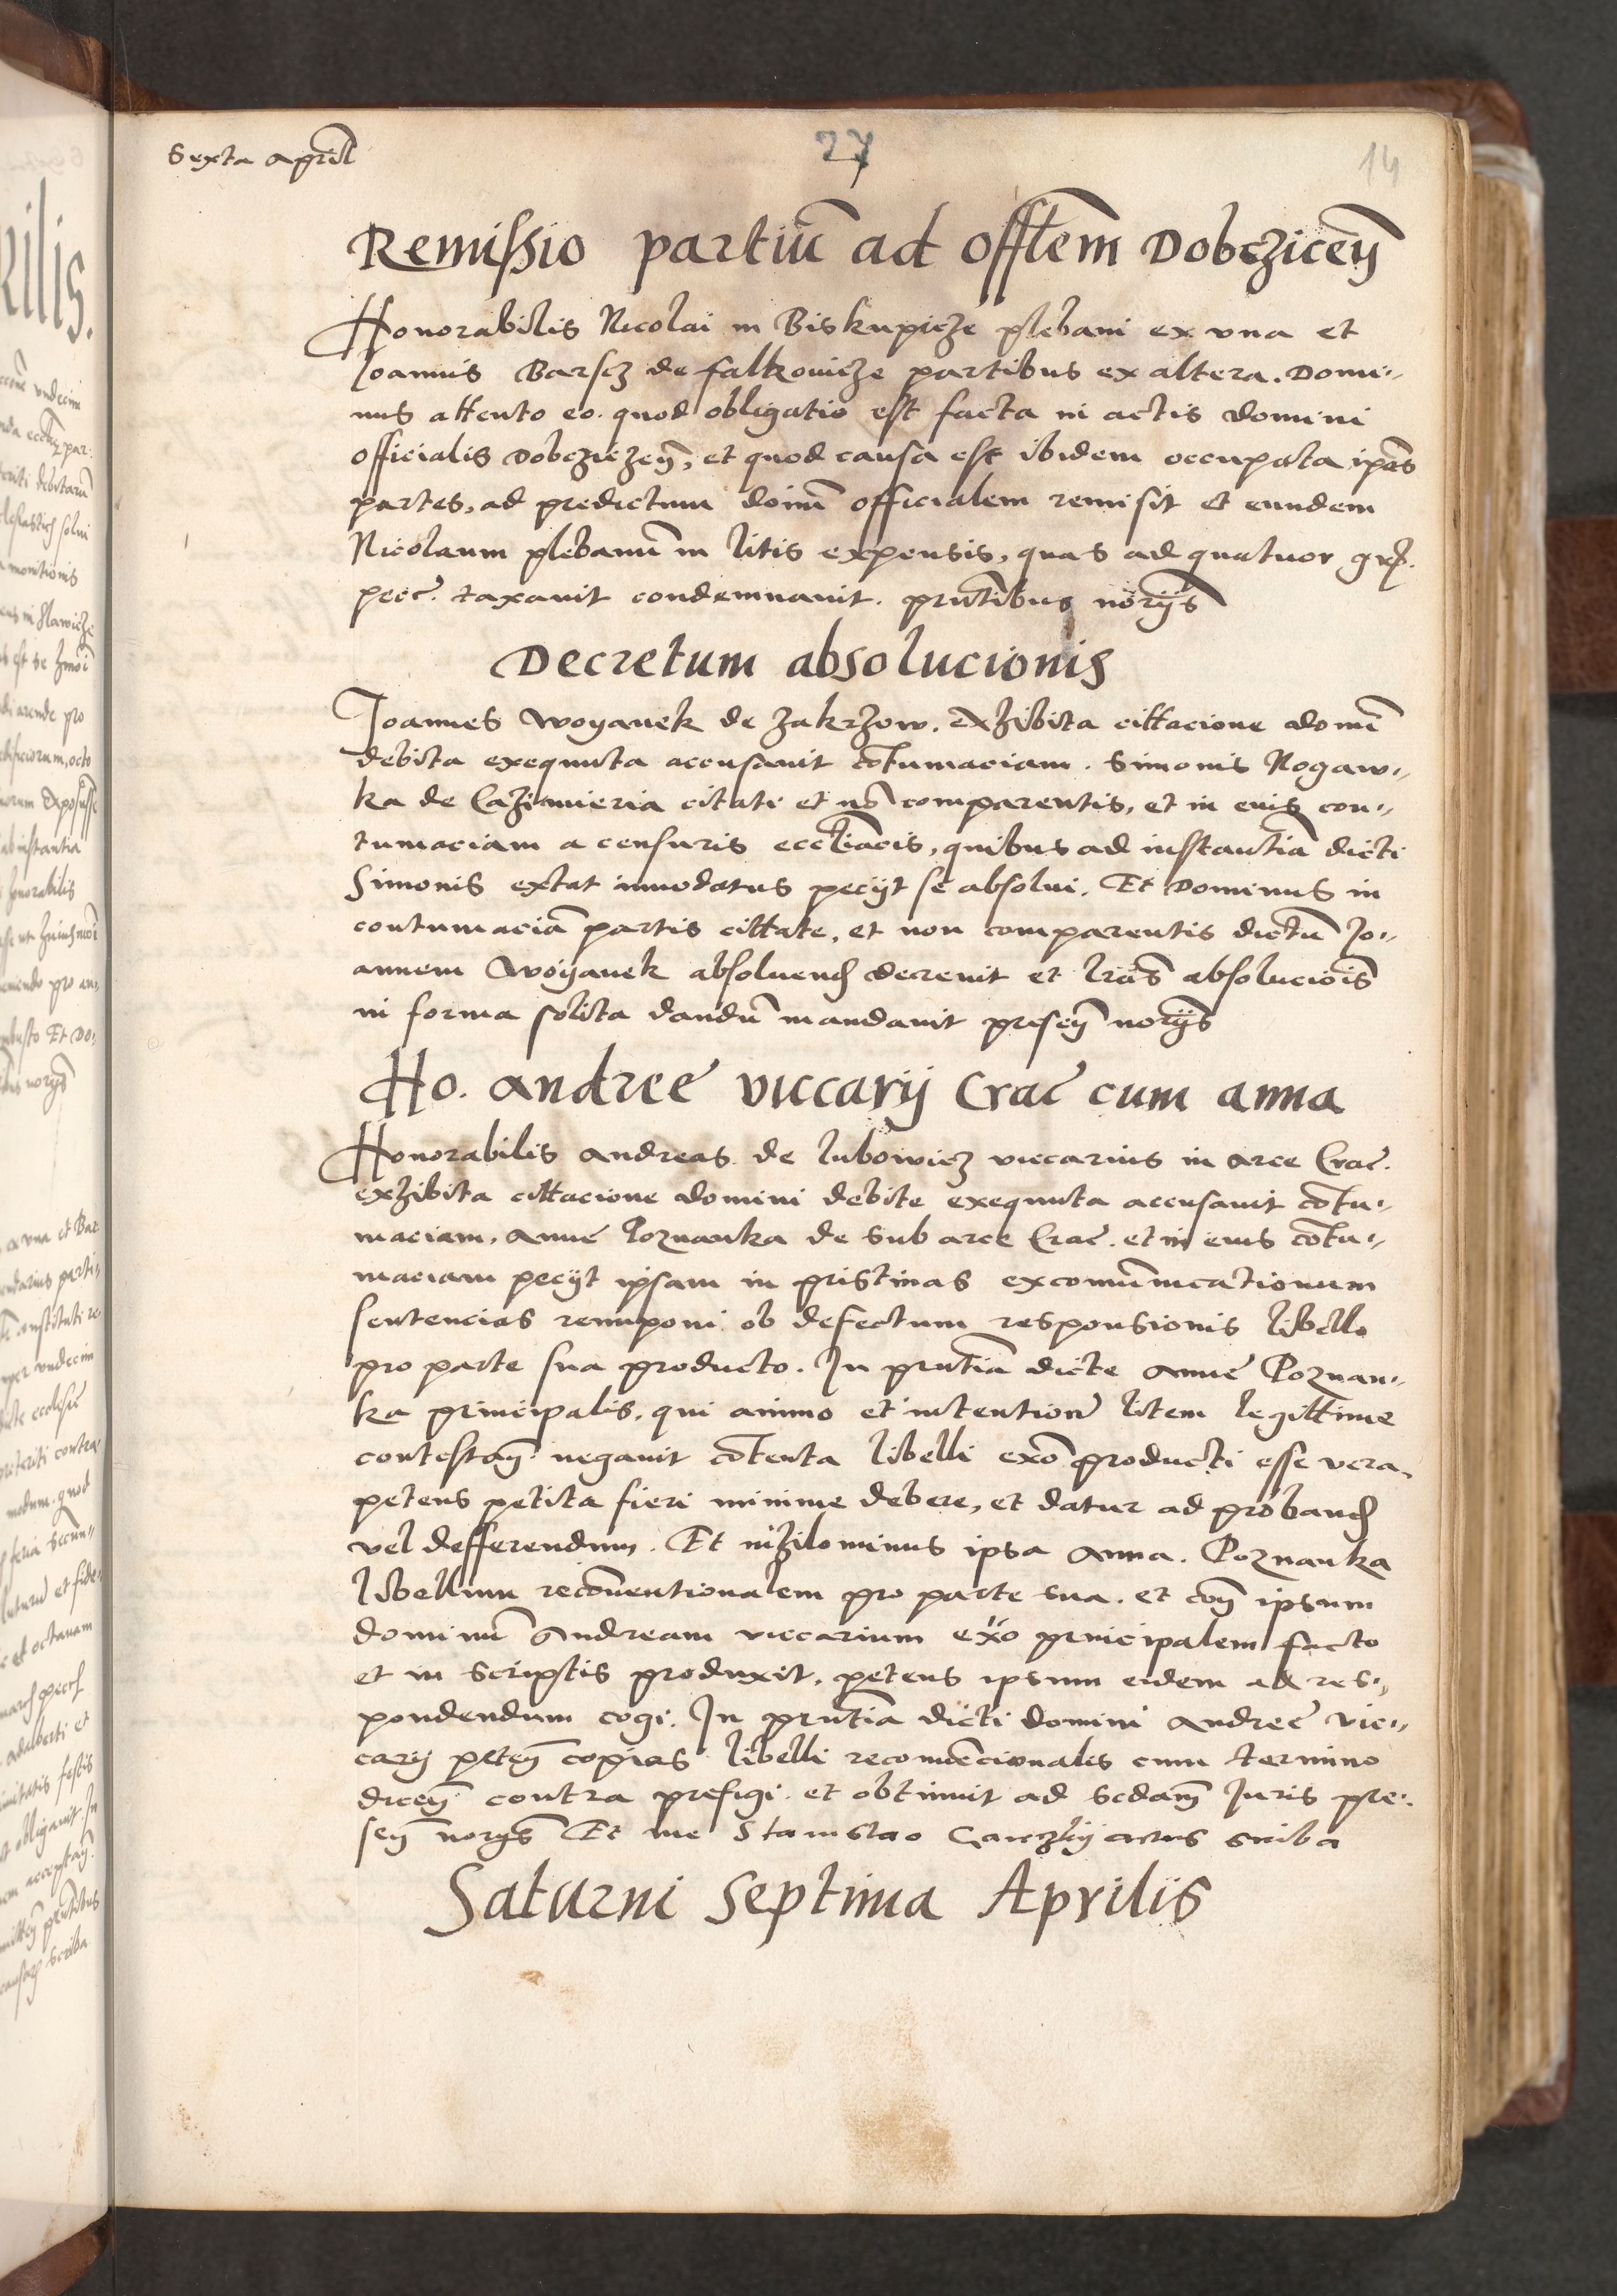 Sexta april
27
14
Remissio partiū ad offlem Dobczicēn
Honorabilis Nicolai in Biskupicze plebani ex vna et
Joannis Barscz de falkowicze partibus ex altera. Domi-
nus attento eo. quod obligatio est facta in actis domini
officialis Dobcziczeñ, et quod causa est ibidem occupata ip̄as
partes, ad predictum dom̄ officialem remisit et eundem
Nicolaum plebanū in litis expensis, quas ad quatuor gr.
pecc. taxavit condemnauit. prn̄tibus nōrijs
Decretum absolucionis
Joannes Woyanek de Zakrzow. exhibita cittacione domī
debita exequuta accusauit cōtumaciam. Simonis Nogaw-
ka de Cazimieria citati et nō comparentis, et in euis con-
tumaciam a censuris eccl̄iacis, quibus ad instantiā dicti
Simonis extat innodatus pecijt se absolui. Et Dominus in
contumaciā partis cittate, et non comparentis dictū Jo-
annem Woyanek absoluend decreuit et lrās absolucioīs
in forma solita dandū mandauit preseñ norijs
Ho. Andree viccarij Crac cum anna
Honorabilis Andreas de lubowicz viccarius in arce Crac.
exhibita cittacione domini debite exequuta accusauit cōtu-
maciam, Anne Poznanka de sub arce Crac. et in euis cōtu-
maciam pecijt ipsam in pristinas excomūnicationum
sentencias reimponi ob defectum responsionis libello
pro parte sua producto. In prn̄tia dicte Anne Poznan-
ka principalis, qui animo et intention litem legittime
contestañ negauit cōtenta libelli exō producti esse vera,
petens petita fieri minime debere, et datur ad proband
vel defferendum. Et nihilominus ipsa Anna. Poznanka
libellum recōnentionalem pro parte sua. et coñ ipsum
dominū Andream viccarium exō principalem facto
et in scriptis produxit, petens ipsum eidem ad res-
pondendum cogi. In prn̄tia dicti domini Andree vic-
carij peteñ copias libelli reconuēcionalis cum termino
diceñ contra prefigi. et obtinuit ad scdam̄ Juris pre-
señ norijs Et me Stanislao actus scriba
Saturni Septima Aprilis